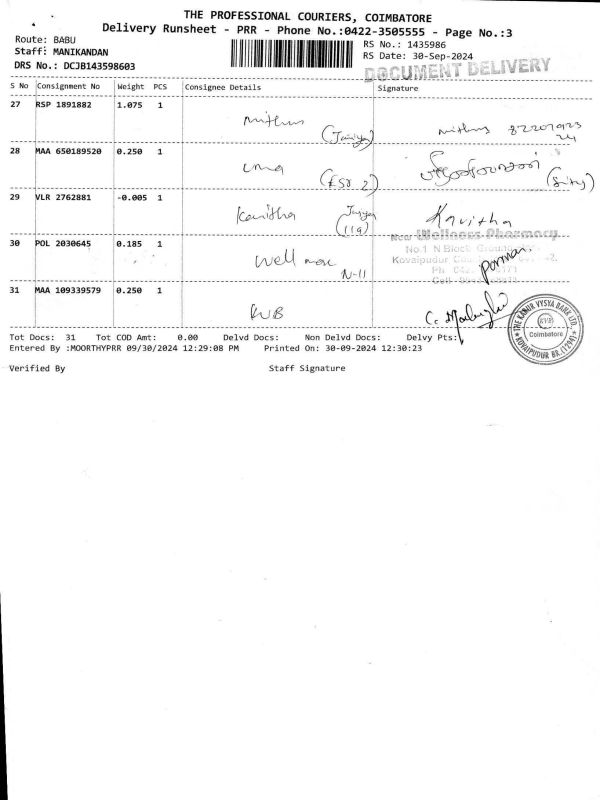 THE PROFESSIONAL COURIERS, COIMBATORE
Delivery Runsheet - PRR - Phone No.:0422-3505555 - Page No.:3
Route: BABU
RS No.: 1435986
Staff: MANIKANDAN
RS Date: 30-Sep-2024
DRS No.: DCJB143598603
DOCUMENT DELIVERY
S No Consignment No Weight PCS Consignee Details Signature
27 RSP 1891882 1.075 1
Mithus
mithus
28 MAA 650189520 0.250 1
Uma
29 VLR 2762881 -0.005 1
Kavitha
(119)
Kavitha
30 POL 2030645 0.185 1
New Wellness Pharmacy
No.1 N Block Ground
Kovaipudur
Well
N-11
31 MAA 109339579 0.250 1
KVB
THE KARUR VYSYA BANK LTD.
KVB
Coimbatore
KOVAIPUDUR BR.(1294)
Tot Docs: 31 Tot COD Amt: 0.00 Delvd Docs: Non Delvd Docs: Delvy Pts:
Entered By :MOORTHYPRR 09/30/2024 12:29:08 PM Printed On: 30-09-2024 12:30:23
Verified By Staff Signature